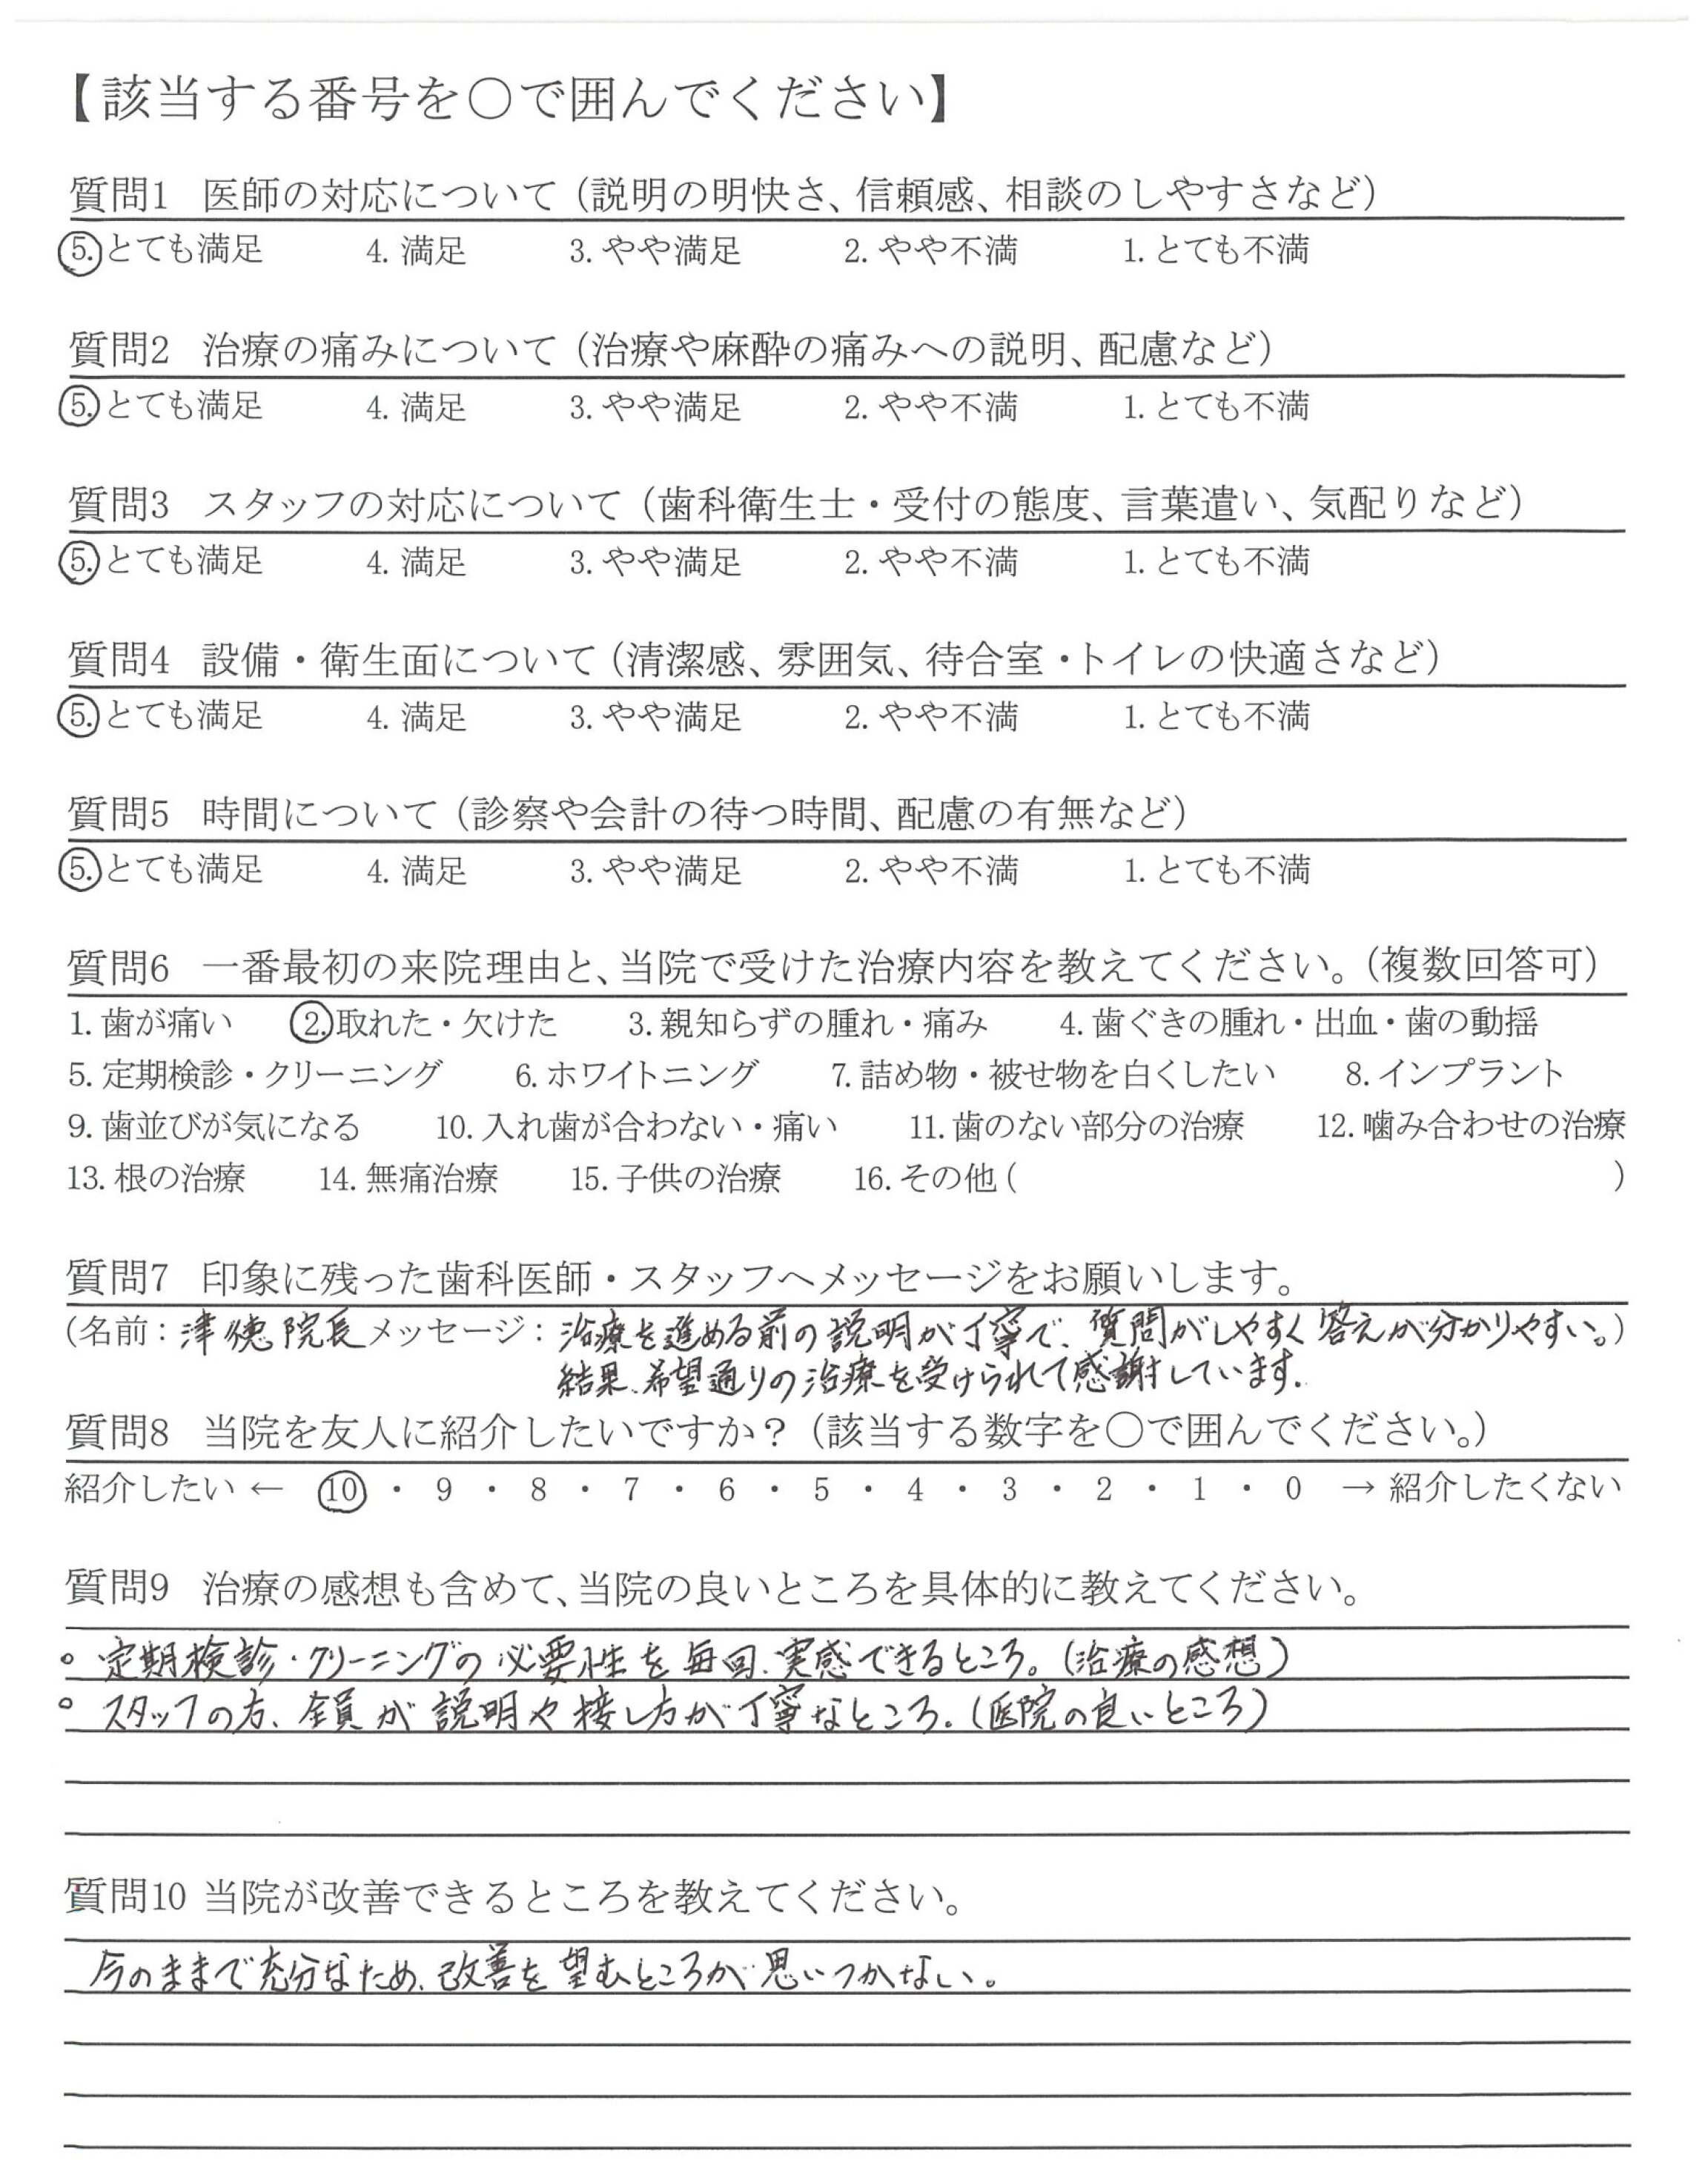 【該当する番号を〇で囲んでください】
質問1 医師の対応について（説明の明快さ、信頼感、相談のしやすさなど）
5.とても満足 4.満足 3.やや満足 2.やや不満 1.とても不満
質問2 治療の痛みについて（治療や麻酔の痛みへの説明、配慮など）
5.とても満足 4.満足 3.やや満足 2.やや不満 1.とても不満
質問3 スタッフの対応について（歯科衛生士・受付の態度、言葉遣い、気配りなど）
5.とても満足 4.満足 3.やや満足 2.やや不満 1.とても不満
質問4 設備・衛生面について（清潔感、雰囲気、待合室・トイレの快適さなど）
5.とても満足 4.満足 3.やや満足 2.やや不満 1.とても不満
質問5 時間について（診察や会計の待つ時間、配慮の有無など）
5.とても満足 4.満足 3.やや満足 2.やや不満 1.とても不満
質問6 一番最初の来院理由と、当院で受けた治療内容を教えてください。（複数回答可）
1.歯が痛い 2.取れた・欠けた 3.親知らずの腫れ・痛み 4.歯ぐきの腫れ・出血・歯の動揺
5.定期検診・クリーニング 6.ホワイトニング 7.詰め物・被せ物を白くしたい 8.インプラント
9.歯並びが気になる 10.入れ歯が合わない・痛い 11.歯のない部分の治療 12.噛み合わせの治療
13.根の治療 14.無痛治療 15.子供の治療 16.その他（ ）
質問7 印象に残った歯科医師・スタッフへメッセージをお願いします。
（名前：津徳院長 メッセージ：治療を進める前の説明が丁寧で、質問がしやすく答えが分かりやすい。）
結果、希望通りの治療を受けられて感謝しています。
質問8 当院を友人に紹介したいですか？（該当する数字を〇で囲んでください。）
紹介したい ← 10 ・ 9 ・ 8 ・ 7 ・ 6 ・ 5 ・ 4 ・ 3 ・ 2 ・ 1 ・ 0 → 紹介したくない
質問9 治療の感想も含めて、当院の良いところを具体的に教えてください。
。定期検診・クリーニングの必要性を毎回、実感できるところ。（治療の感想）
。スタッフの方、全員が説明や接し方が丁寧なところ。（医院の良いところ）
質問10 当院が改善できるところを教えてください。
今のままで充分なため、改善を望むところが思いつかない。